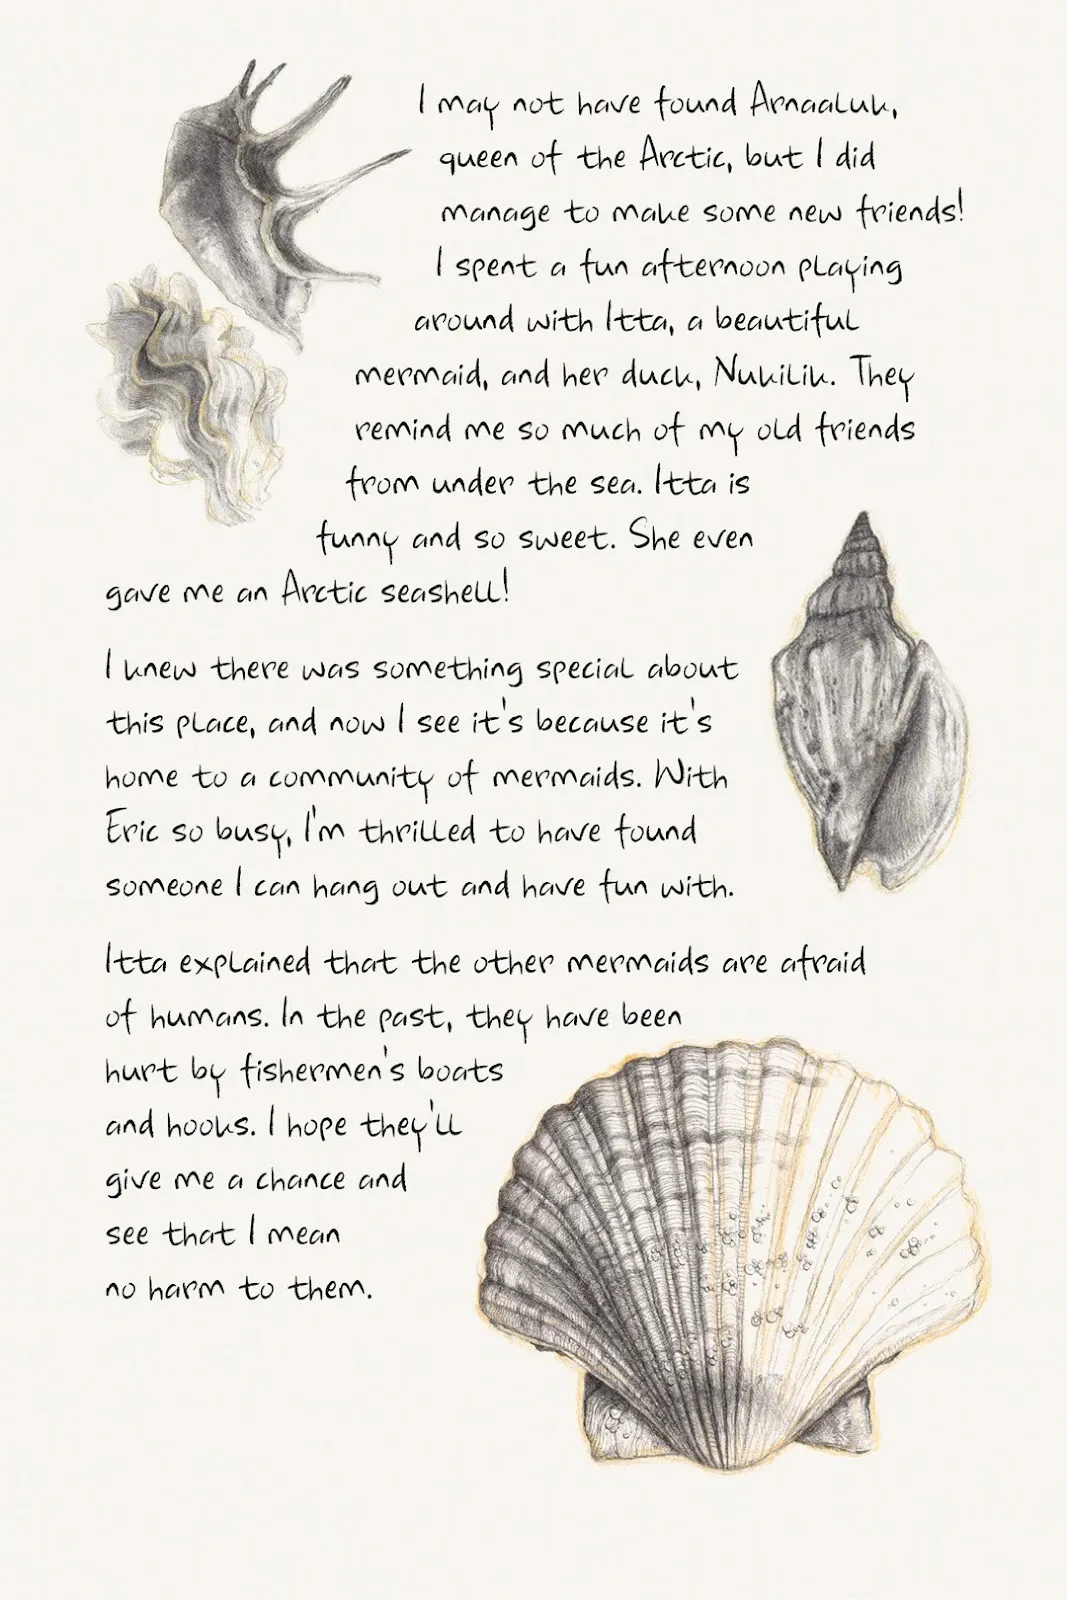 I may not have found Arnaaluk,
queen of the Arctic, but I did
manage to make some new friends!
I spent a fun afternoon playing
around with Itta, a beautiful
mermaid, and her duck, Nukilik. They
remind me so much of my old friends
from under the sea. Itta is
funny and so sweet. She even
gave me an Arctic seashell!
I knew there was something special about
this place, and now I see it's because it's
home to a community of mermaids. With
Eric so busy, I'm thrilled to have found
someone I can hang out and have fun with.
Itta explained that the other mermaids are afraid
of humans. In the past, they have been
hurt by fishermen's boats
and hooks. I hope they'll
give me a chance and
see that I mean
no harm to them.